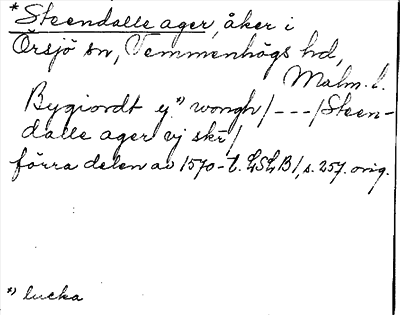 *Steendalle ager, åker i
Örsjö sn, Vemmenhögs hd,
Malm. l.
Bygiordt y *) wongh/---/Steen-
dalle ager vj skr/
förra delen av 1570-t. LSLB1, s. 257. orig.
*) lucka